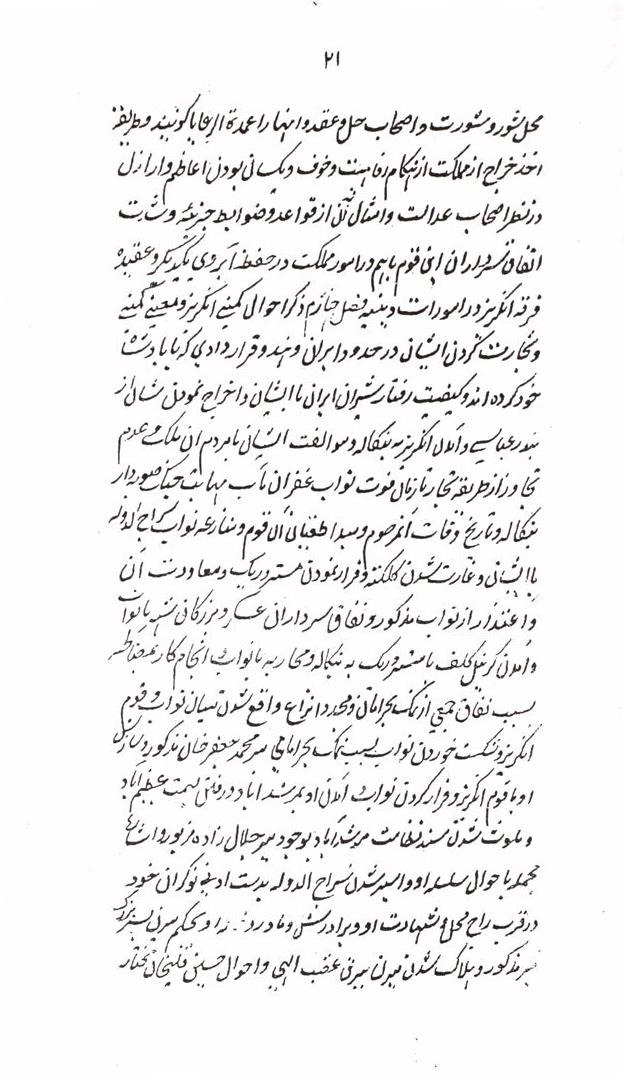 ۲۱
محل شور و مشورت و اصحاب حل و عقد و اینها را عمدة الرعایا کویند و طریقه
اخذ خراج از مملکت از هنکام رفاهیت و خوف و یکسانی بودن اعاظم و اراذل
در نظر اصحاب عدالت و امثال آن از قواعد و ضوابط جزئیه و
اتفاق سرداران این قوم با هم در امور مملکت در حفظ آبروی یکدیکر و عقیده
فرقه انکریز در امورات دینیه فصل چهارم ذکر احوال کمپنی انکریز و معنی کمپنی
و تجارت کردن ایشان در حدود ایران و هند و قراردادی که با پادشاه
خود کرده اند و کیفیت رفتار ایران با ایشان و اخراج نمودن شان از
بندر عباسی و آمدن انکریز به بنکاله و موالفت ایشان با مردم آن ملک و عدم
تجاوز از طریقه تجار تا زمان فوت نواب غفران مآب مهابت جنک صوبه دار
بنکاله و تاریخ وفات آنمرحوم و مبدا طغیان آن قوم و منازعه نواب سراج الدوله
با ایشان و غارت شدن کلکته و فرار نمودن مستر دریک و معاودت آن
و اعتذار از نواب مذکور و نفاق سرداران عسکر و بزرکان
و آمدن کرنیل کلف با مستر دریک به بنکاله و محاربه با نواب و انجام کار
بسبب نفاق جمعی از نمک بحرامان و مجددا نزاع واقع شدن میان نواب و قوم
انکریز و شکست خوردن نواب بسبب نمک بحرامی میر محمد جعفر خان مذکور و
او با قوم انکریز و فرار کردن نواب و آمدن او بمرشد اباد و رفتن بسمت عظیم آباد
و ملوث شدن مسند نظامت مرشد آباد بوجود میر جلال زاده مزبور و
مجمله باحوال سلسله او و اسیر شدن سراج الدوله بدست ادنی نوکران خود
در قرب راج محل و شهادت او و برادرش و مادر او بحکم میرن پسر بزرک
میر مذکور و هلاک شدن میرن ببرق غضب الهی و احوال حسین قلیخان مختار